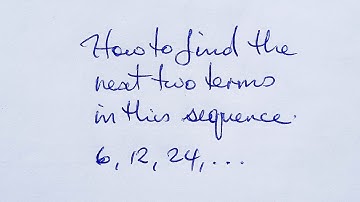 How to find the
next two terms
in this sequence.
6, 12, 24, ...